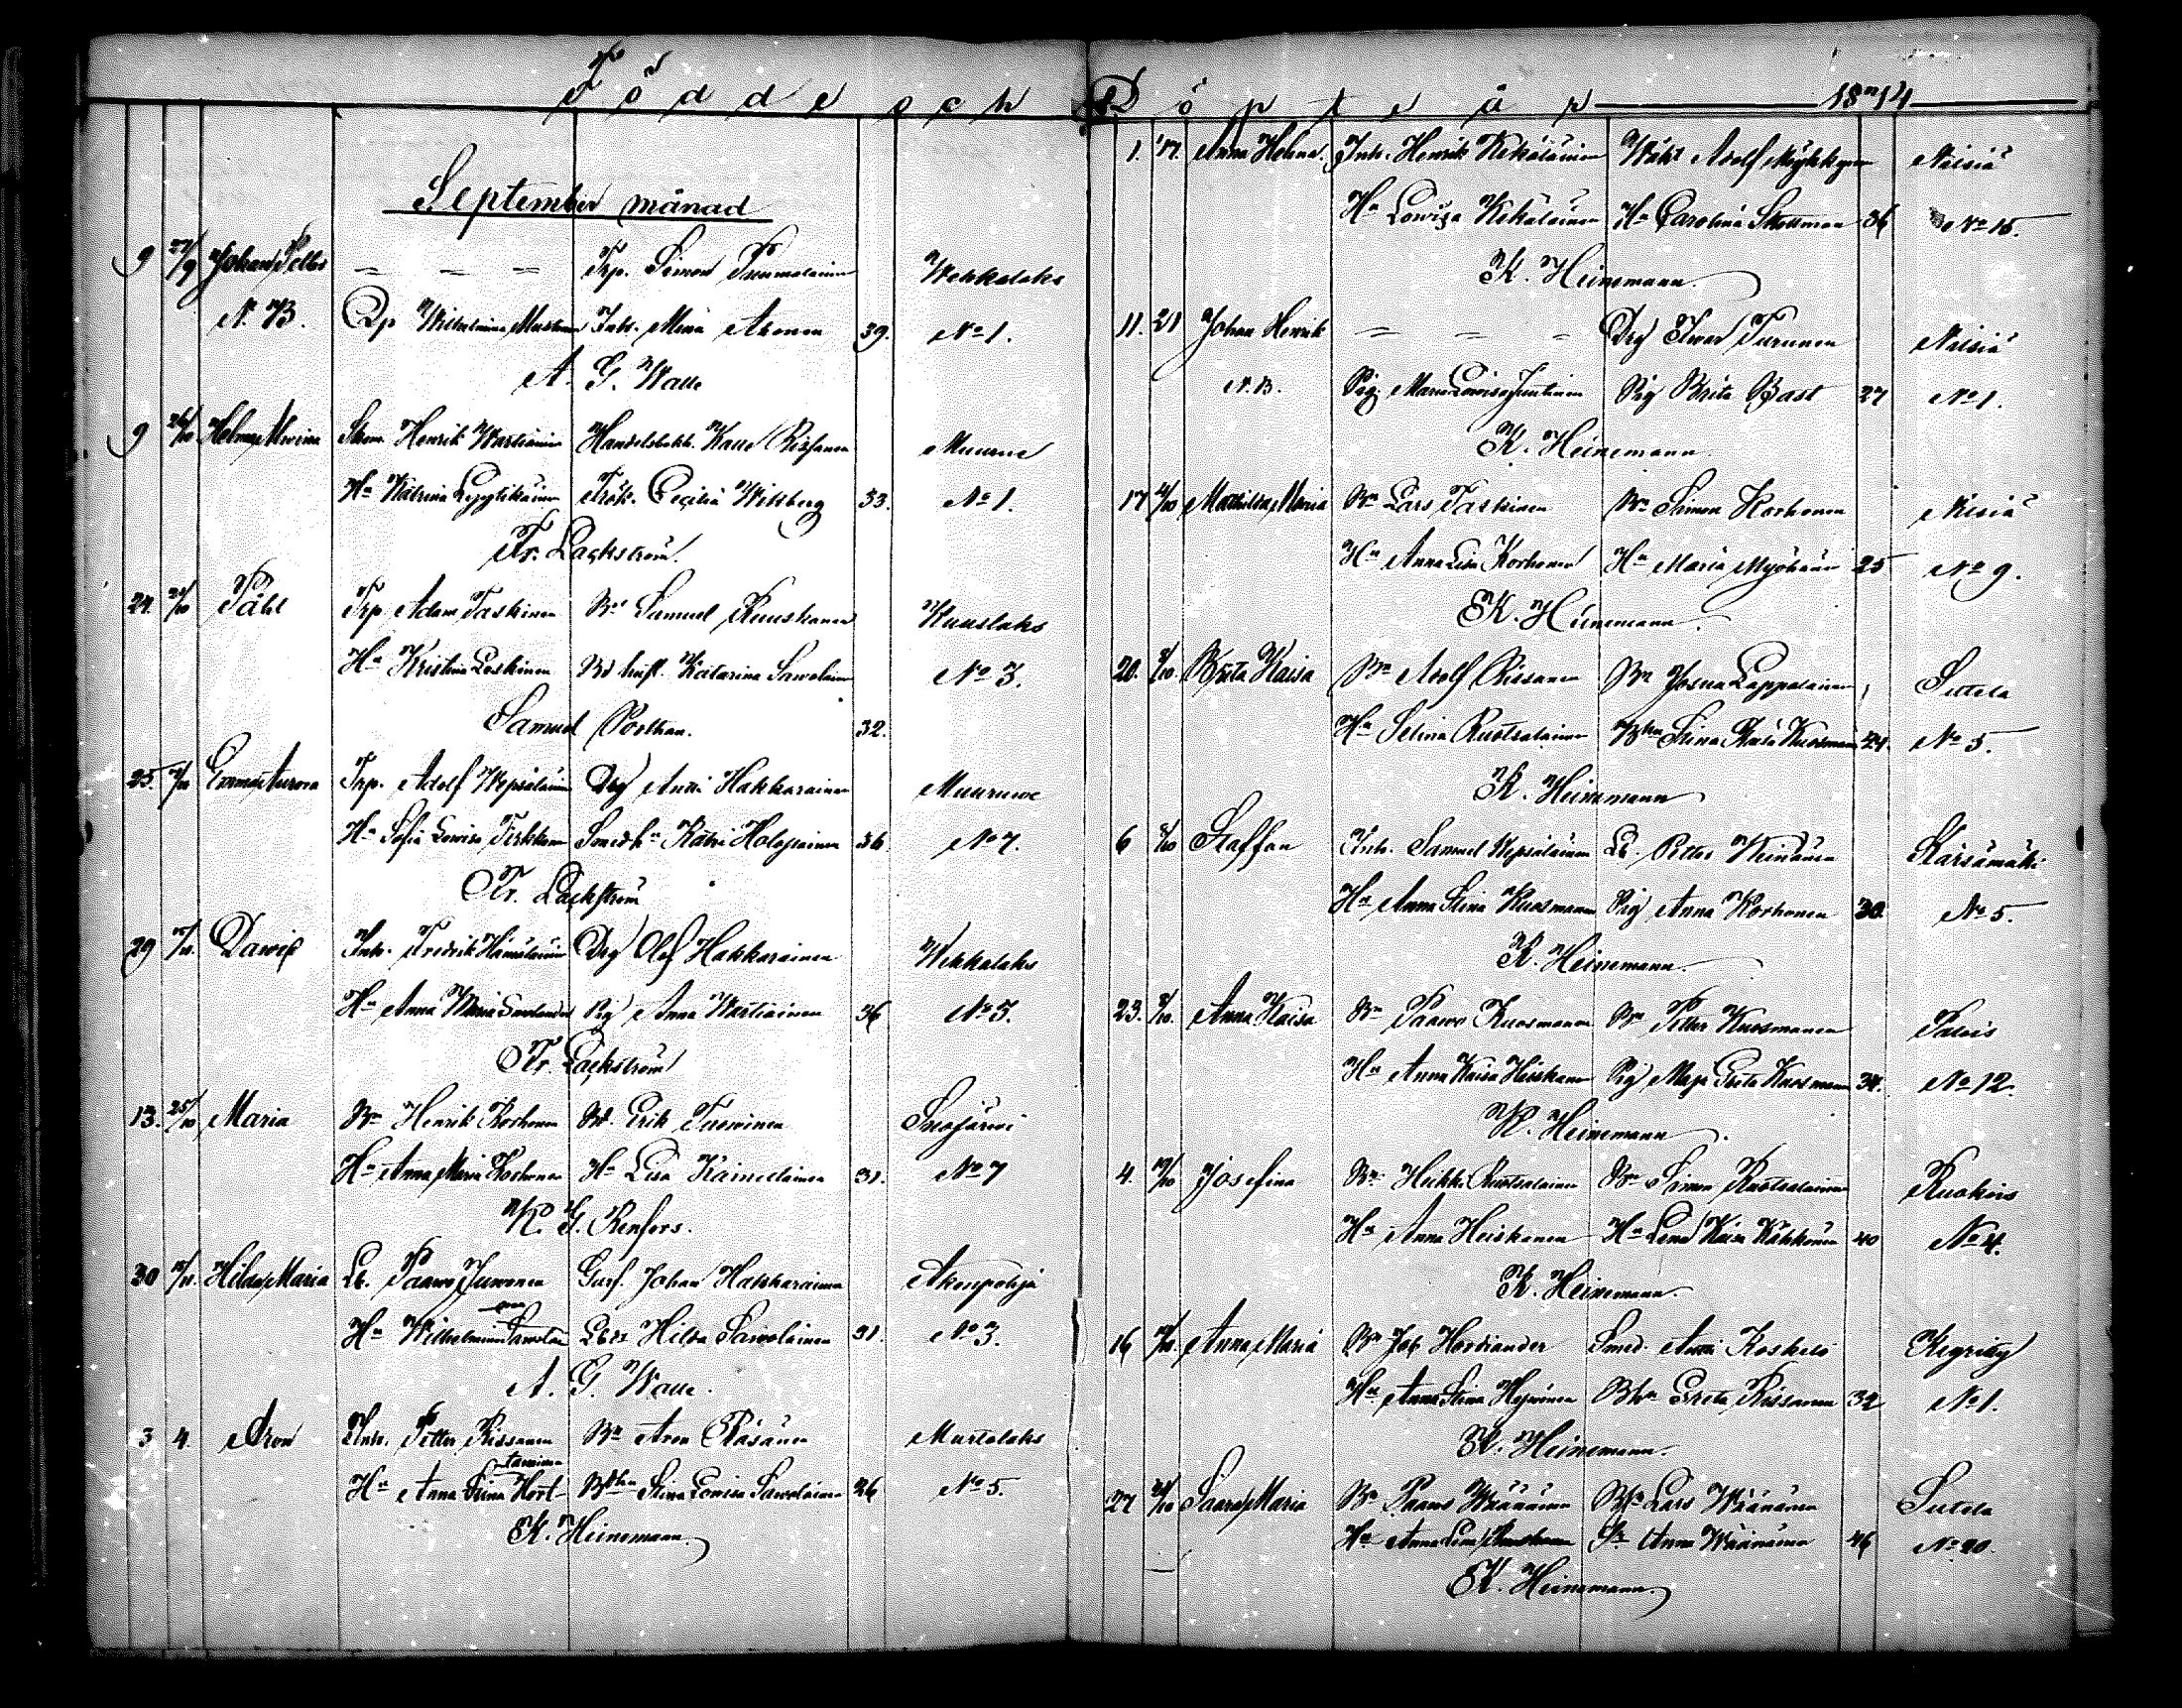 Födde och Döpte år 1874
September månad
9 27/9 Johan Petter — — — Trp. Simon Tuomalainen Wehkalaks
N.B. Qp Wilhelmina Mustonen Inh. Mina Ahonen 39. No 1.
A. G. Walle
9 26/10 Helena Alwina Skom. Henrik Wartiainen Handelsbokh. Kalle Rissanen Muurue
Hu Katrina Lyytikäinen Frök. Cecilia Witsberg 33. No 1.
Fr. Lackström.
24. Påhl Trp Adam Taskinen Bd Samuel Ruuskanen Kuuslaks
Hu Kristina Leskinen Bd hust. Katarina Sawolainen No 3.
Samuel Porthan. 32.
25. Emma Aurora Trp. Adolf Wepsäläinen Drg Antti Hakkarainen Muuruwe
Hu Sofia Lowisa Pirkkonen Smedh. Katri Holopainen 36 No 7.
Fr. Lackström
29 Dawid Inh. Fredrik Hämäläinen Drg Olof Hakkarainen Wehkalaks
Hu Anna Maria Pig Anna Wartiainen 36 No 5.
Fr. Lackström
13. 25/10 Maria Bn Henrik Korhonen Bd. Erik Turuinen Suojärwi
Hu Anna Maria Korhonen Hu Lisa Kainulainen 31. No 7
K. G. Renfors.
30 Hilda Maria Lb. Paawo Juwonen Gurf. Johan Hakkarainen Akonpohja
Hu Wilhelmina Sawolainen Lbdr Hilda Sawolainen 31. No 3.
A. G. Walle.
3 4. Aron Inh. Petter Rissanen Bn Aron Räsänen Martolaks
Hu Anna Stina Hort-tanainen Bdhu Stina Lowisa Sawolainen 26 No 5.
K. Heinemann.
1. 17. Anna Helena. Inh. Henrik Kekäläinen Wäkt Adolf Mykkynen Nilsiä
Hu Lowisa Kekäläinen Hu Carolina Skottman 36 No 15.
K. Heinemann.
11. 21 Johan Henrik — — — Drg Iwar Turunen Nilsiä
N.B. Pig. Maria Lowisa Juutinen Pig Brita Bast 27 No 1.
K. Heinemann
17 4/10 Mathilda Maria Bn Lars Taskinen Bn Simon Korhonen Nilsiä
Hu Anna Lisa Korhonen Hu Maria Myöhänen 25 No 9.
K. Heinemann.
20. Brita Kaisa Bn Adolf Rissanen Bn Josua Lappalainen Sutela
Hu Selina Ruotsalainen Bhu Stina Kaisa Kuosmanen 24. No 5.
K. Heinemann
6 Staffan Inh. Samuel Wepsäläinen Lb. Petter Weinänen Kärsämäki
Hu Anna Stina Kuosmanen Pig Anna Korhonen 30. No 5.
K. Heinemann.
23. Anna Kaisa Bn Paawo Kuosmanen Bn Petter Kuosmanen Palois
Hu Anna Kaisa Heiskanen Pig Maja Greta Kuosmanen 34. No 12.
K. Heinemann.
4. Josefina Bn Heikki Ruotsalainen Bn Simon Ruotsalainen Ruokois
Hu Anna Heiskanen Hu Lena Kaisa Kähkönen 40 No 4.
K. Heinemann.
16 Anna Maria Bn Job Hordiander Smed. Antti Koskelo Keyrity
Hu Anna Stina Hyvönen Bhu Greta Rissanen 32 No 1.
K. Heinemann.
27 Saara Maria Bn Paawo Wäänänen Bn Lars Wäänänen Sutela
Hu Anna Lena Ruuskanen Anna Wäänänen 46 No 20.
K. Heinemann.